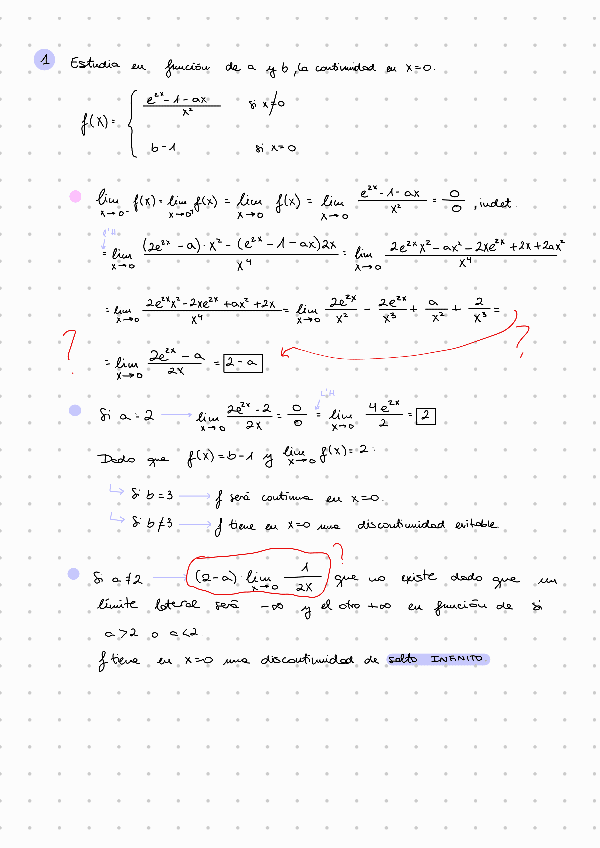 1 Estudia en función de a y b, la continuidad en x=0.
f(x)= { (e^2x - 1 - ax)/x² si x≠0
b-1 si x=0
lim x→0⁻ f(x) = lim x→0⁺ f(x) = lim x→0 f(x) = lim x→0 (e^2x - 1 - ax)/x² = 0/0, indet.
L'H
= lim x→0 ((2e^2x - a)·x² - (e^2x - 1 - ax)2x)/x⁴ = lim x→0 (2e^2x x² - ax² - 2xe^2x + 2x + 2ax²)/x⁴
= lim x→0 (2e^2x x² - 2xe^2x + ax² + 2x)/x⁴ = lim x→0 2e^2x/x² - 2e^2x/x³ + a/x² + 2/x³ =
? ?
= lim x→0 (2e^2x - a)/2x = 2-a
L'H
Si a=2 → lim x→0 (2e^2x - 2)/2x = 0/0 = lim x→0 4e^2x/2 = 2
Dado que f(x)=b-1 y lim x→0 f(x)=2:
↳ Si b=3 → f será continua en x=0.
↳ Si b≠3 → f tiene en x=0 una discontinuidad evitable
?
Si a≠2 — (2-a) lim x→0 1/2x que no existe dado que un
límite lateral será -∞ y el otro +∞ en función de si
a>2 o a<2
f tiene en x=0 una discontinuidad de salto INFINITO